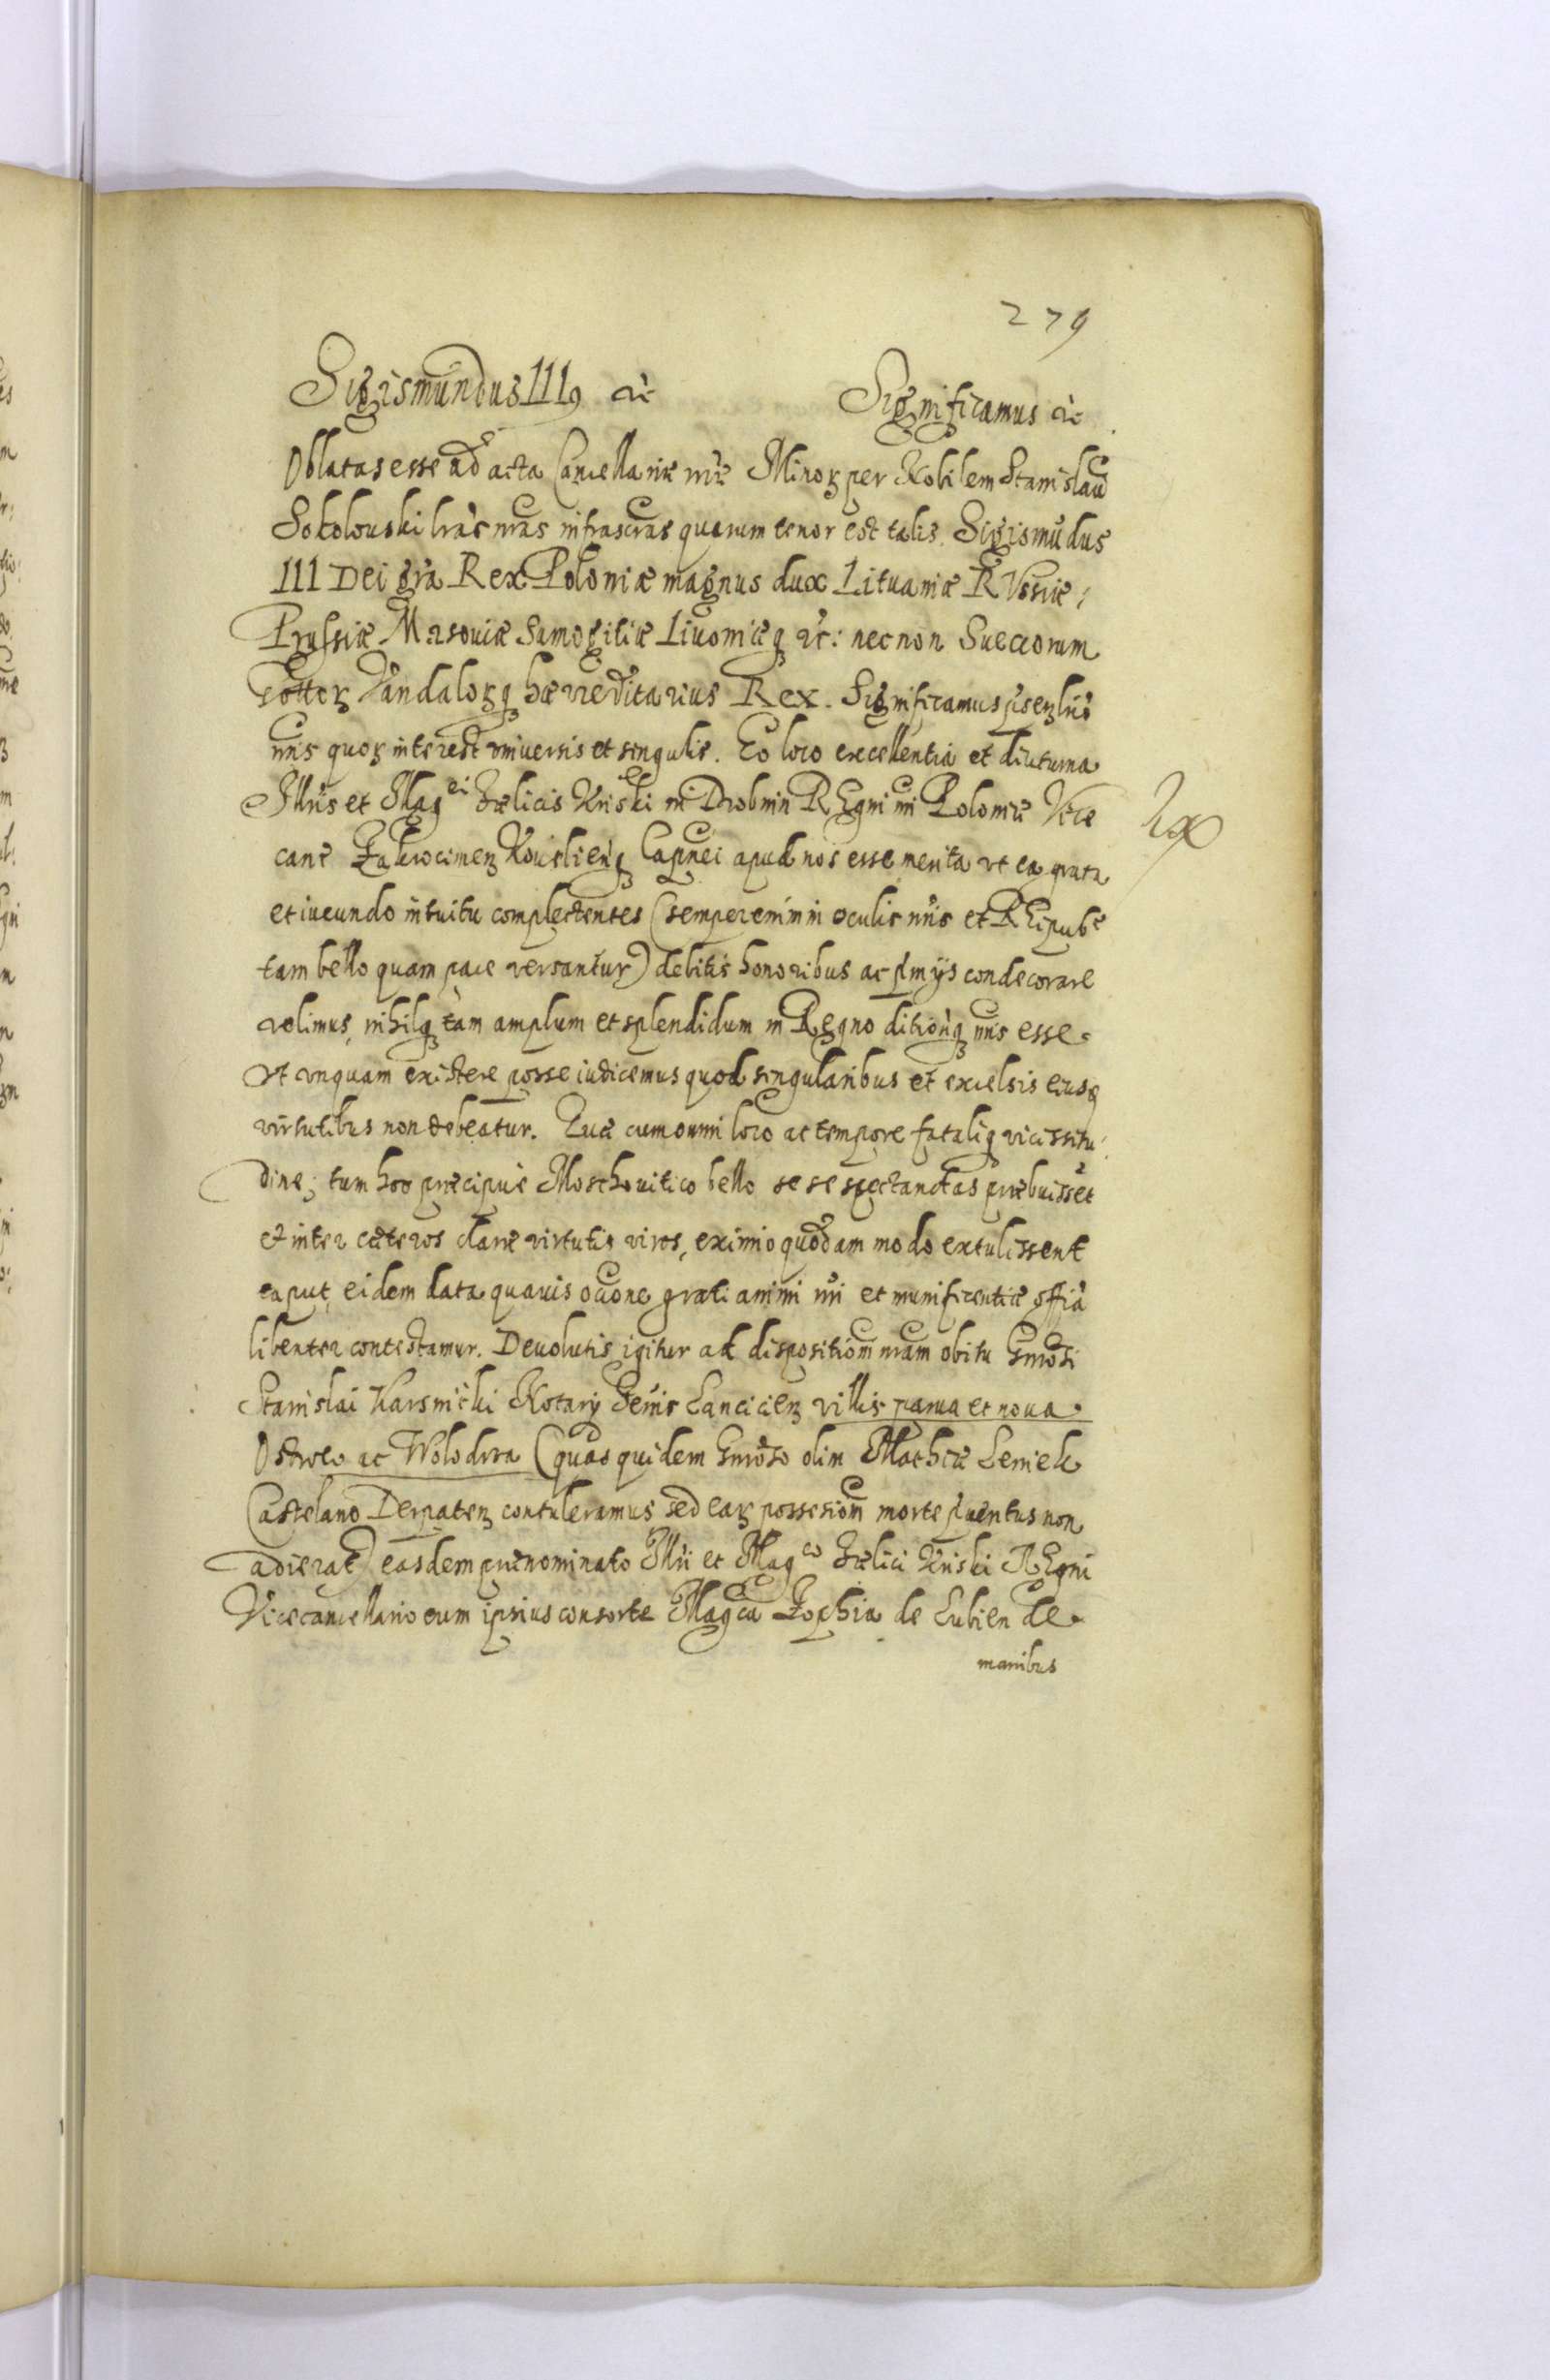 279
Sigismundus III9 etc Significamus etc
Oblatas esse ad acta Cancellariæ nræ Minorꝫ per Nobilem Stanislau
Sokolouski lras nras infrascras quarum tenor est talis. Sigismudus
III Dei gra Rex Poloniæ magnus dux Lituaniæ RVssiæ,
Prussiæ Masouiæ Samogitiæ Liuoniæq etc: necnon Sueccorum
Gottorꝫ Vandalorꝫq hæreditarius Rex. Significamus
nris quorꝫ interest vniuersis et singulis. Eo loco excellentia et diuturna
Illris et Magci Fœlicis Kriski in Drobnin REgni nri Poloniæ Vice
canc Zakrocimenꝫ Capnei apud nos esse merita vt ea grata
et iucundo intuitu complectentes (semper enim in oculis nris et REipubᵉ
tam bello quam pace versantur) debitis honoribus ac pmijs condecorare
velimus, nihilq tam amplum et splendidum in Regno ditionq nris esse
vt vnquam existere posse iudicemus quod singularibus et excelsis eius
virtutibus non debeatur. Quæ cum omni loco ac tempore fataliq vicissitu
dine; tum hoc præcipue Moschouitico bello se se spectandas præbuisset
et inter cæteros claræ virtutis viros, eximio quodam modo extulissent
caput, eidem data quauis ocone grati animi nri et munificentiæ offia
libenter contestamur. Deuolutis igitur ad dispositiom nram obitu Gnrosi
Stanislai Karsnicki Notarij Lancicienꝫ villis parua et noua
Ostrolo ac Wolodrza (quas quidem Gnroso olim Mathiæ Leniek
Castelano Derpatenꝫ contuleramus sed earꝫ possesiom morte puentus non
adierat) easdem prænominato Illri et Magco Fœlici Kriski REgni
Vicecancellario cum ipsius consorte Magca Zophia de Lubien de
manibus